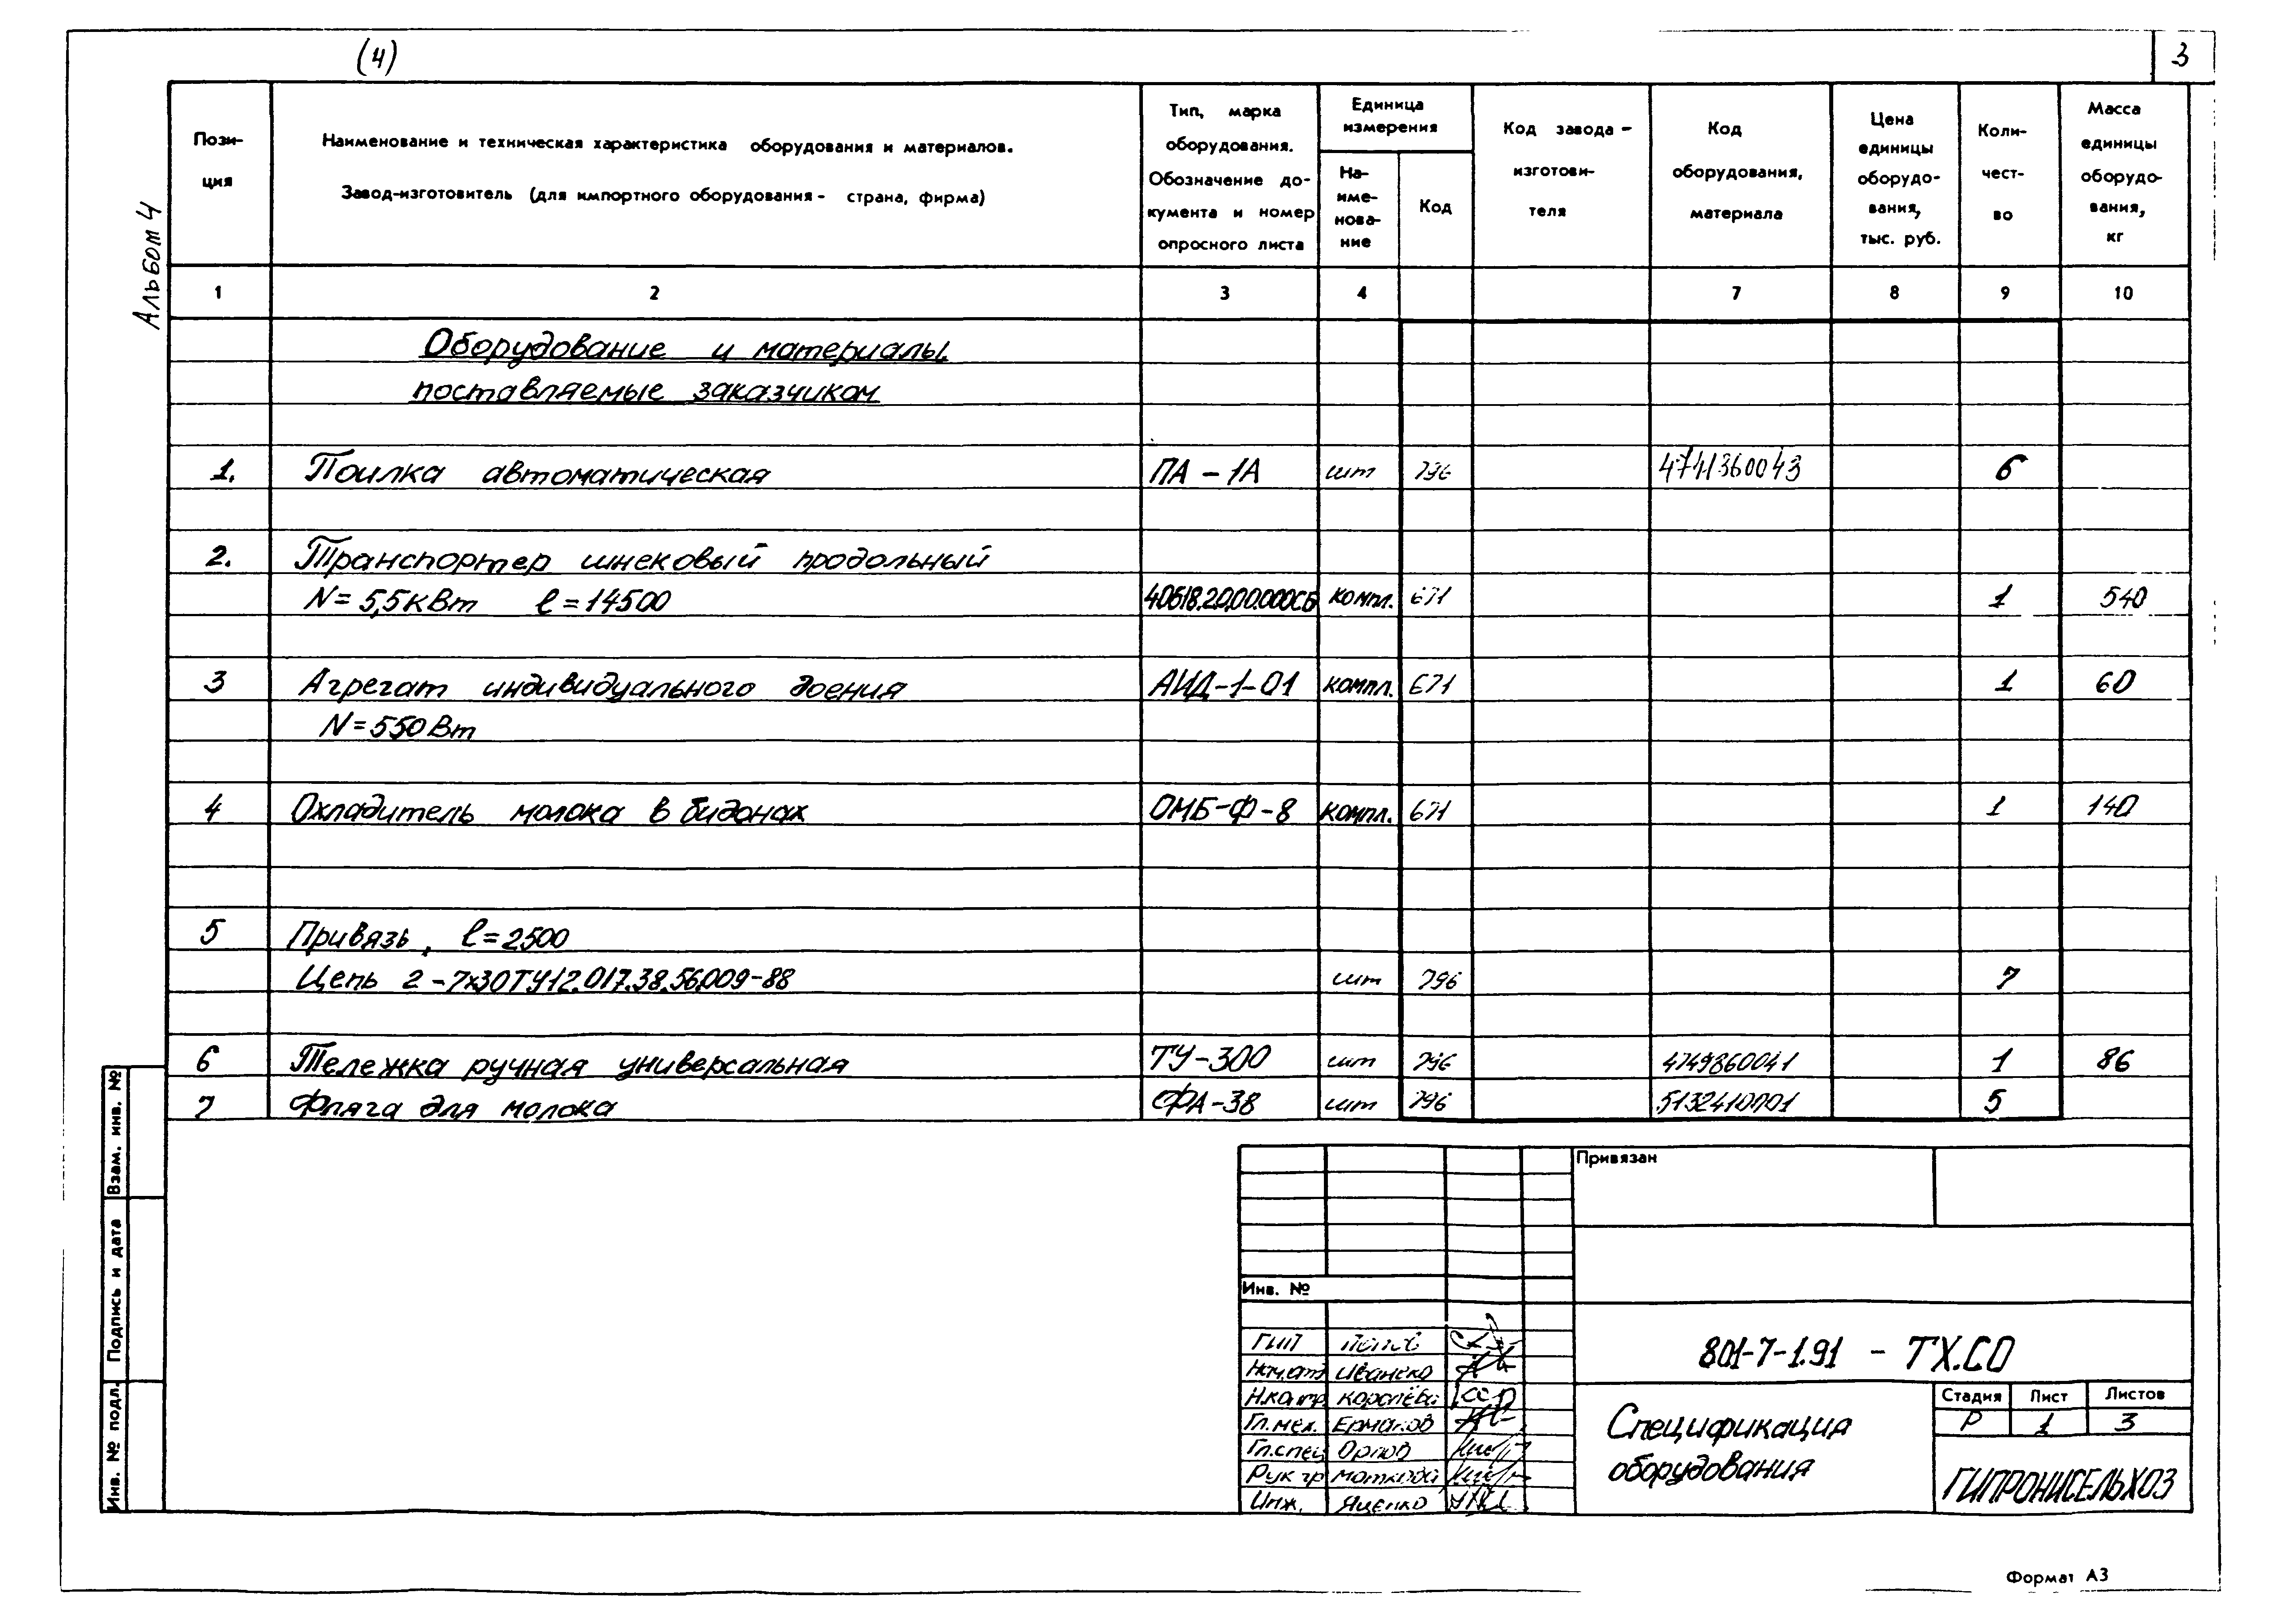 (4)
3
Альбом 4
Пози-
ция
Наименование и техническая характеристика оборудования и материалов.
Завод-изготовитель (для импортного оборудования - страна, фирма)
Тип, марка
оборудования.
Обозначение до-
кумента и номер
опросного листа
Единица
измерения
На-
име-
нова-
ние
Код
Код завода -
изготови-
теля
Код
оборудования,
материала
Цена
единицы
оборудо-
вания,
тыс. руб.
Коли-
чест-
во
Масса
единицы
оборудо-
вания,
кг
1 2 3 4 7 8 9 10
Оборудование и материалы,
поставляемые заказчиком
1. Поилка автоматическая ПА-1А шт 796 4741360043 6
2. Транспортер шнековый продольный
N=5,5кВт ℓ=14500 40618.20.00.000СБ компл. 671 1 540
3 Агрегат индивидуального доения АИД-1-01 компл. 671 1 60
N=550Вт
4 Охладитель молока в бидонах ОМБ-Ф-8 компл. 671 1 140
5 Привязь, ℓ=2500
Цепь 2-7х30ТУ12.017.38.56.009-88 шт 796 7
6 Тележка ручная универсальная ТУ-300 шт 796 4749860041 1 86
7 Фляга для молока ФА-38 шт 796 5132410701 5
Взам. инв. №
Подпись и дата
Инв. № подл.
Привязан
Инв. №
ГИП Попов
Нач.отд Иваненко
Н.контр. Королёва
Гл.мех. Ермаков
Гл.спец Орлов
Рук гр
Инж. Яценко
801-7-1.91 - ТХ.СО
Спецификация
оборудования
Стадия Лист Листов
Р 1 3
ГИПРОНИСЕЛЬХОЗ
Формат А3